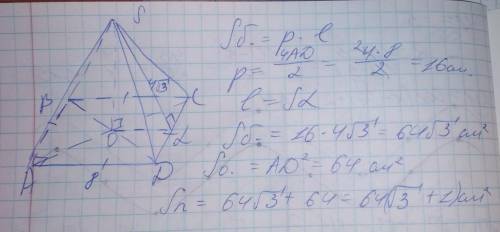 S
4√3
B
C
O
L
A
8
D
Sб. = p · l
p = 4AD/2 = 24·8/2 = 16см.
l = SL
Sб. = 16 · 4√3 = 64√3 см²
Sо. = AD² = 64 см²
Sп = 64√3 + 64 = 64(√3 + 1) см²